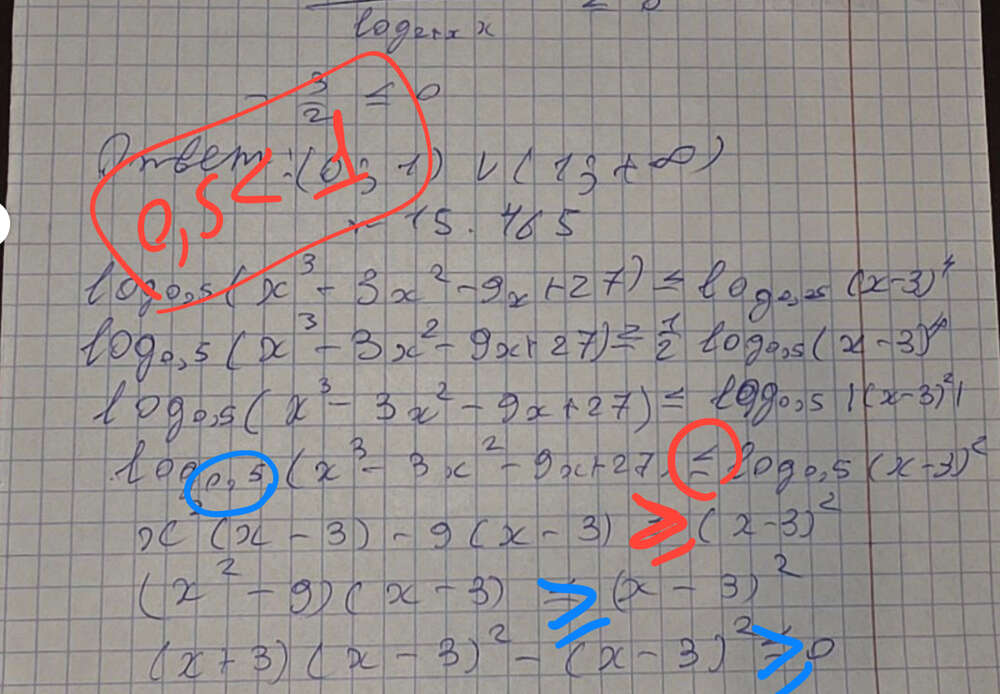 log₂₊ₓ x ≤ 0
- 3/2 ≤ 0
Ответ: (0; 1) ∨ (1; +∞)
0,5 < 1
15.465
log₀,₅(x³ - 3x² - 9x + 27) ≤ log₀,₂₅ (x-3)⁴
log₀,₅(x³ - 3x² - 9x + 27) ≤ 1/2 log₀,₅(x-3)⁴
log₀,₅(x³ - 3x² - 9x + 27) ≤ log₀,₅ |(x-3)²|
log₀,₅(x³ - 3x² - 9x + 27) ≤ log₀,₅ (x-3)²
x²(x - 3) - 9(x - 3) ≥ (x-3)²
(x² - 9)(x - 3) ≥ (x - 3)²
(x+3)(x - 3)² - (x - 3)² ≥ 0